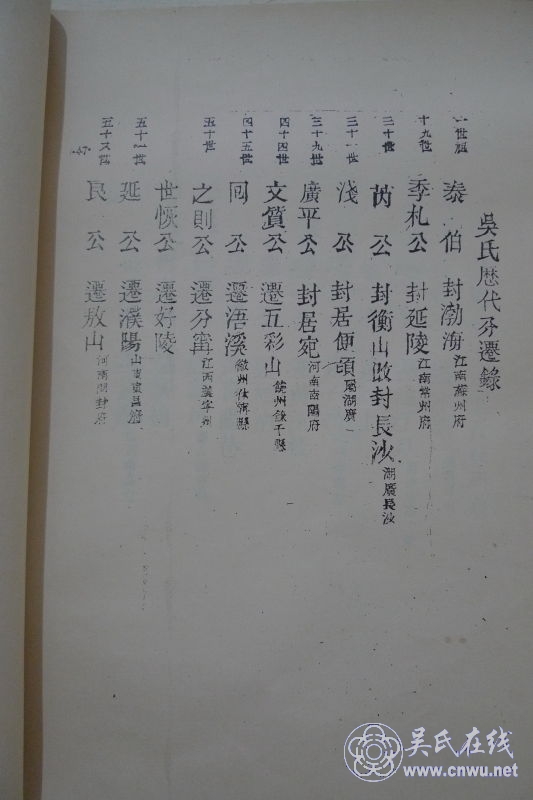 吳氏歷代分遷錄
一世祖 泰伯 封渤海 江南蘇州府
十九世 季札公 封延陵 江南常州府
二十世 芮公 封衡山改封長沙 湖廣長沙
三十一世 淺公 封居便頃 屬湖廣
三十九世 廣平公 封居宛 河南南陽府
四十四世 文質公 遷五彩山 饒州餘干縣
四十五世 同公 遷浯溪 徽州休寧縣
五十世 之則公 遷分甯 江西義寧州
世恢公 遷好陵
五十一世 延公 遷濮陽 山東東昌府
五十六世 良公 遷敖山 河南開封府
吴氏在线
www.cnwu.net